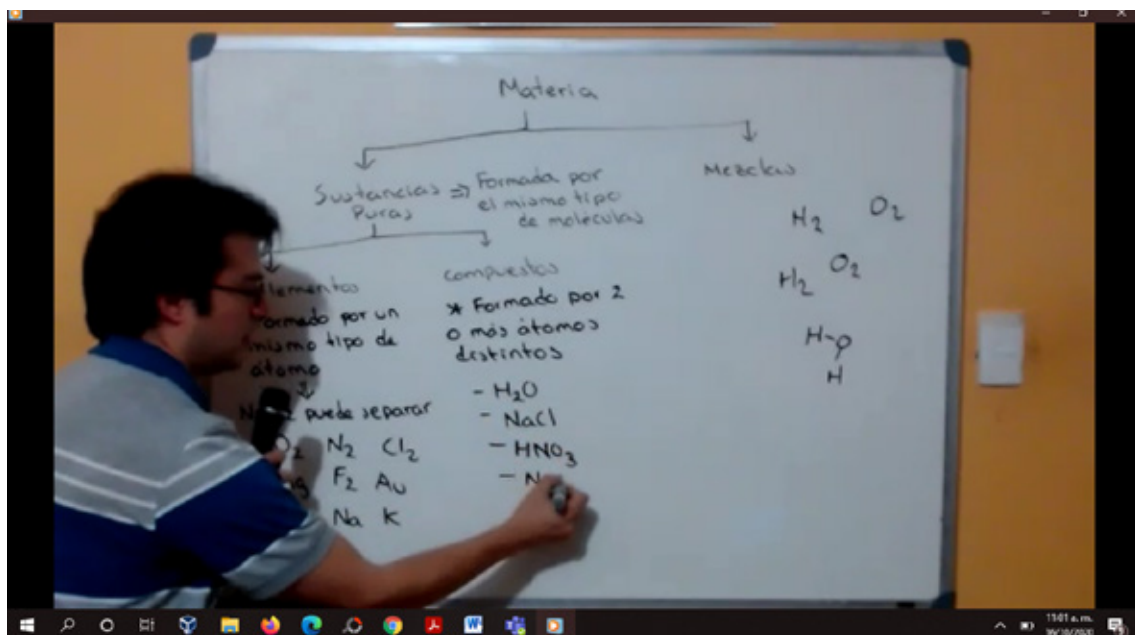 Materia
Sustancias ⇒ Formada por
Puras
el mismo tipo
de moléculas
Mezclas
H₂ O₂
H₂ O₂
H-O
H
Elementos
Formado por un
mismo tipo de
átomo
puede separar
O₂ N₂ Cl₂
F₂ Au
Na K
Compuestos
* Formado por 2
o más átomos
distintos
- H₂O
- NaCl
- HNO₃
- N
11:01 a.m.